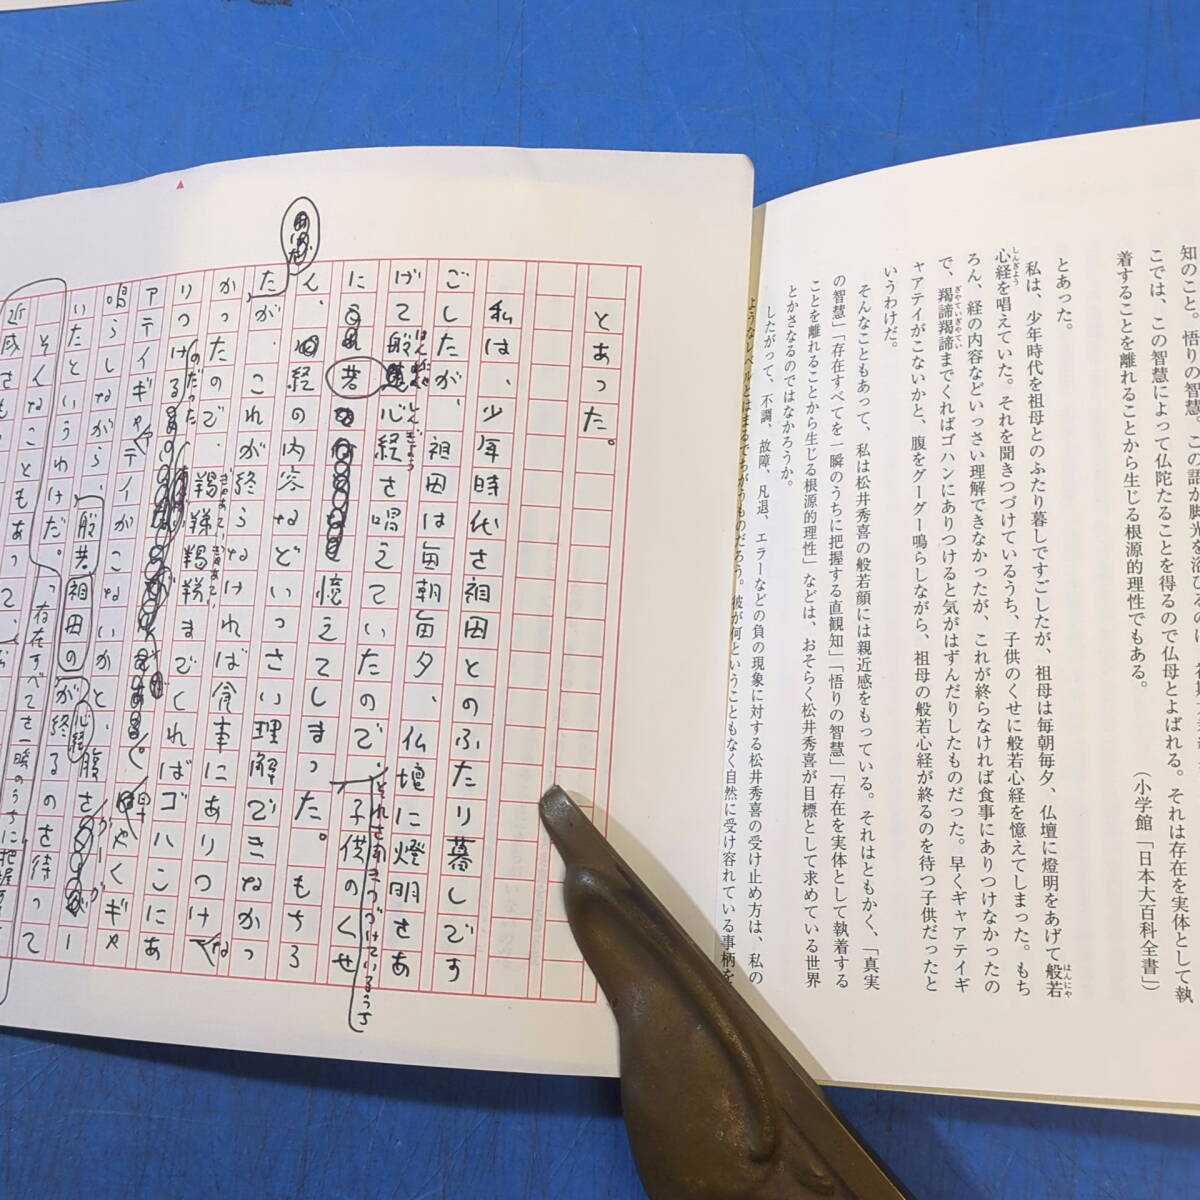 知のこと。悟りの智慧。この語が脚光を浴びるの
こでは、この智慧によって仏陀たることを得るので仏母とよばれる。それは存在を実体として執
着することを離れることから生じる根源的理性でもある。
（小学館「日本大百科全書」）
とあった。
私は、少年時代を祖母とのふたり暮しですごしたが、祖母は毎朝毎夕、仏壇に燈明をあげて般若
はんにや
心経を唱えていた。それを聞きつづけているうち、子供のくせに般若心経を憶えてしまった。もち
しんぎよう
ろん、経の内容などいっさい理解できなかったが、これが終らなければ食事にありつけなかったの
で、羯諦羯諦までくればゴハンにありつけると気がはずんだりしたものだった。早くギャアテイギ
ぎやていぎやてい
ャアテイがこないかと、腹をグーグー鳴らしながら、祖母の般若心経が終るのを待つ子供だったと
いうわけだ。
そんなこともあって、私は松井秀喜の般若顔には親近感をもっている。それはともかく、「真実
の智慧」「存在すべてを一瞬のうちに把握する直観知」「悟りの智慧」「存在を実体として執着する
ことを離れることから生じる根源的理性」などは、おそらく松井秀喜が目標として求めている世界
とかさなるのではなかろうか。
したがって、不調、故障、凡退、エラーなどの負の現象に対する松井秀喜の受け止め方は、私の
ようなレベルとはまるでちがうものだろう。彼が何ということもなく自然に受け容れている事柄を
とあった。
私は、少年時代を祖母とのふたり暮しです
ごしたが、祖母は毎朝毎夕、仏壇に燈明をあ
げて般若心経を唱えていたので、子供のくせ
それを聞きつづけているうち
に
憶えてしまった。もちろ
ん、経の内容などいっさい理解できなかっ
たが、これが終らなければ食事にありつけな
かったので、羯諦羯諦までくればゴハンにあ
りつける
のだった
早くギャ
アテイギャアテイがこないかと、腹を
鳴らしながら、般若心経が終るのを待って
祖母の
いたというわけだ。
そんなこともあって、
存在すべてを一瞬のうちに把握